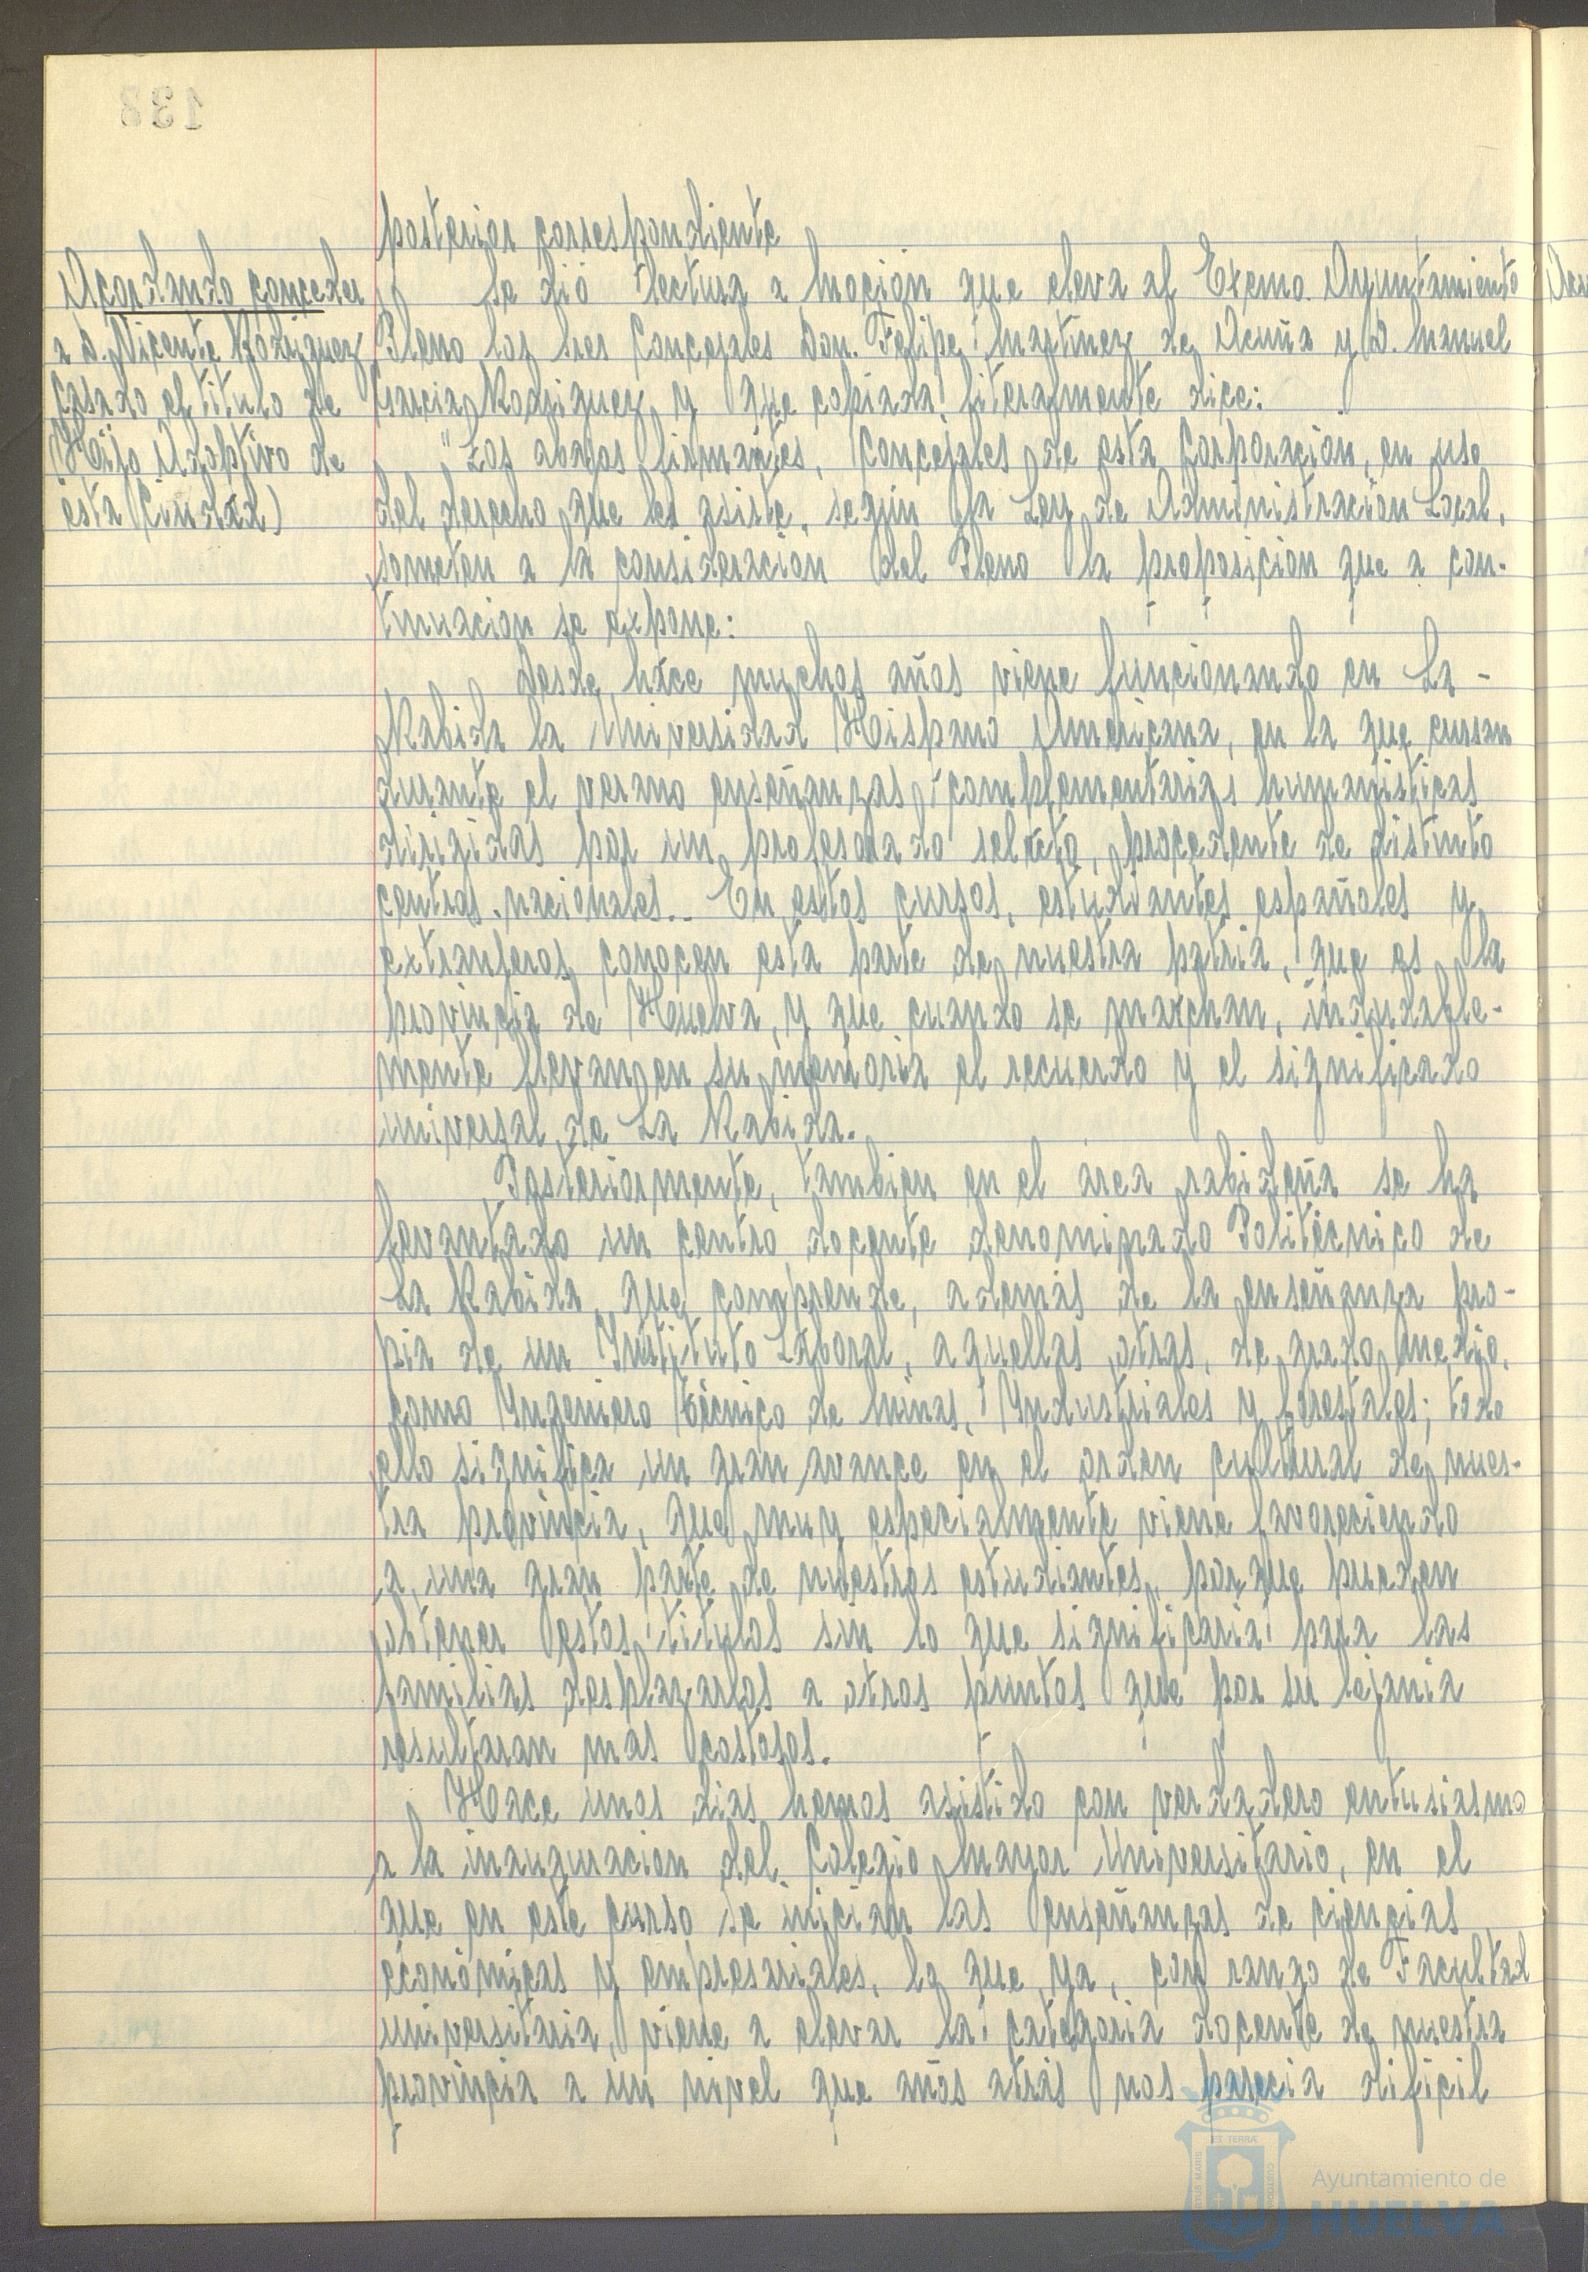 138
posterior correspondiente
Acordando conceder
a D. Vicente Rodriguez
Casado el titulo de
Hijo Adoptivo de
esta Ciudad)
Se dió lectura a moción que eleva al Excmo. Ayuntamiento
Pleno los Sres Concejales Don. Felipe Martinez de Acuña y D. Manuel
Garcia Rodriguez y que copiada literalmente dice:
"Los abajos firmantes, Concejales de esta Corporación, en uso
del derecho que les asiste, según la Ley de Administración Local,
someten a la consideración del Pleno la proposicion que a con-
tinuacion se expone:
Desde hace muchos años viene funcionando en La -
Rabida la Universidad Hispano Americana, en la que cursan
durante el verano enseñanzas complementarias humanisticas
dirigidas por un profesorado selecto, procedente de distinto
centros nacionales.- En estos cursos, estudiantes españoles y
extranjeros conocen esta parte de nuestra patria, que es la
provincia de Huelva, y que cuando se marchan, indudable-
mente llevan en su memoria el recuerdo y el significado
universal de La Rabida.
Posteriormente, tambien en el área rabideña se ha
levantado un centro docente denominado Politécnico de
La Rabida, que comprende, además de la enseñanza pro-
pia de un Instituto Laboral, aquellas otras, de grado medio,
como Ingeniero técnico de Minas, Industriales y Forestales; todo
ello significa un gran avance en el orden cultural de nues-
tra provincia, que muy especialmente viene favoreciendo
a una gran parte de nuestros estudiantes, porque pueden
obtener estos titulos sin lo que significaria para las
familias desplazarlos a otros puntos que por su lejania
resultaran mas costosos.
Hace unos dias hemos asistido con verdadero entusiasmo
a la inauguracion del Colegio Mayor Universitario, en el
que en este curso se inician las enseñanzas de ciencias
económicas y empresariales, lo que ya, con rango de Facultad
universitaria, viene a elevar la categoria docente de nuestra
provincia a un nivel que años atrás nos parecia dificil
Ayuntamiento de
HUELVA